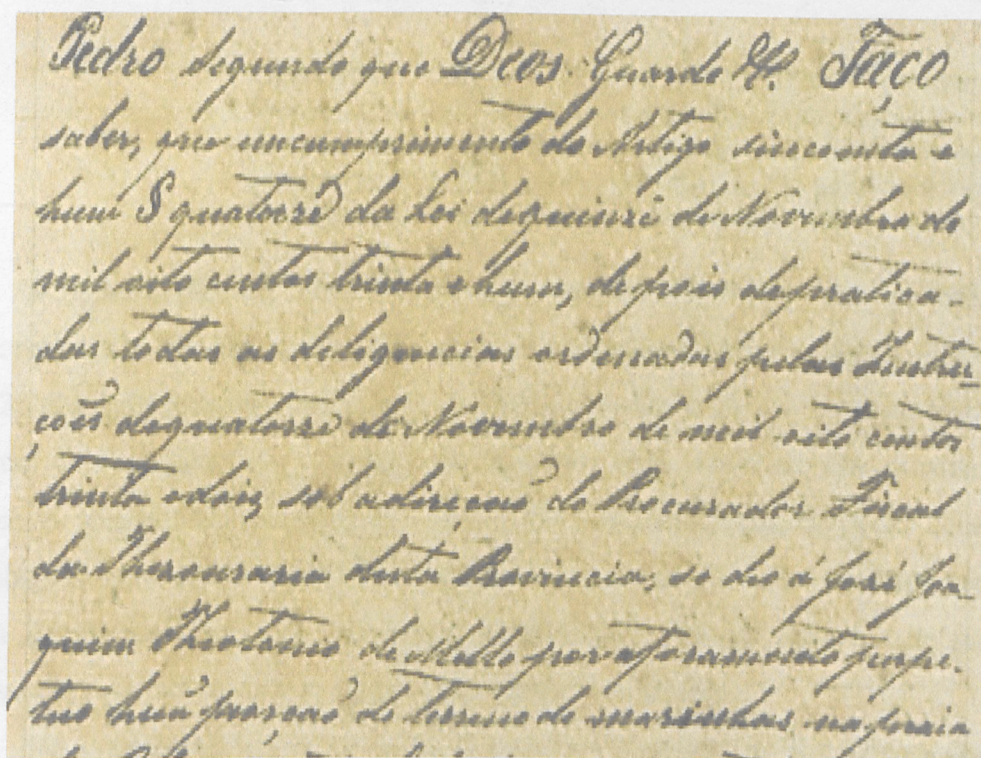 Pedro Segundo que Deos Guarde &. Faço
saber, que em cumprimento do Artigo sincoenta e
hum § quatorze da Lei de quinze de Novembro de
mil oito centos trinta e hum, depois de pratica-
das todas as deligencias ordenadas pelas Instru-
ções de quatorze de Novembro de mil oito centos
trinta e dois, sob a direcção do Procurador Fiscal
da Thesouraria desta Provincia, se deo á José Joa-
quim Theotonio de Mello por aforamento perpe-
tuo huã porção de terreno de marinhas na praia